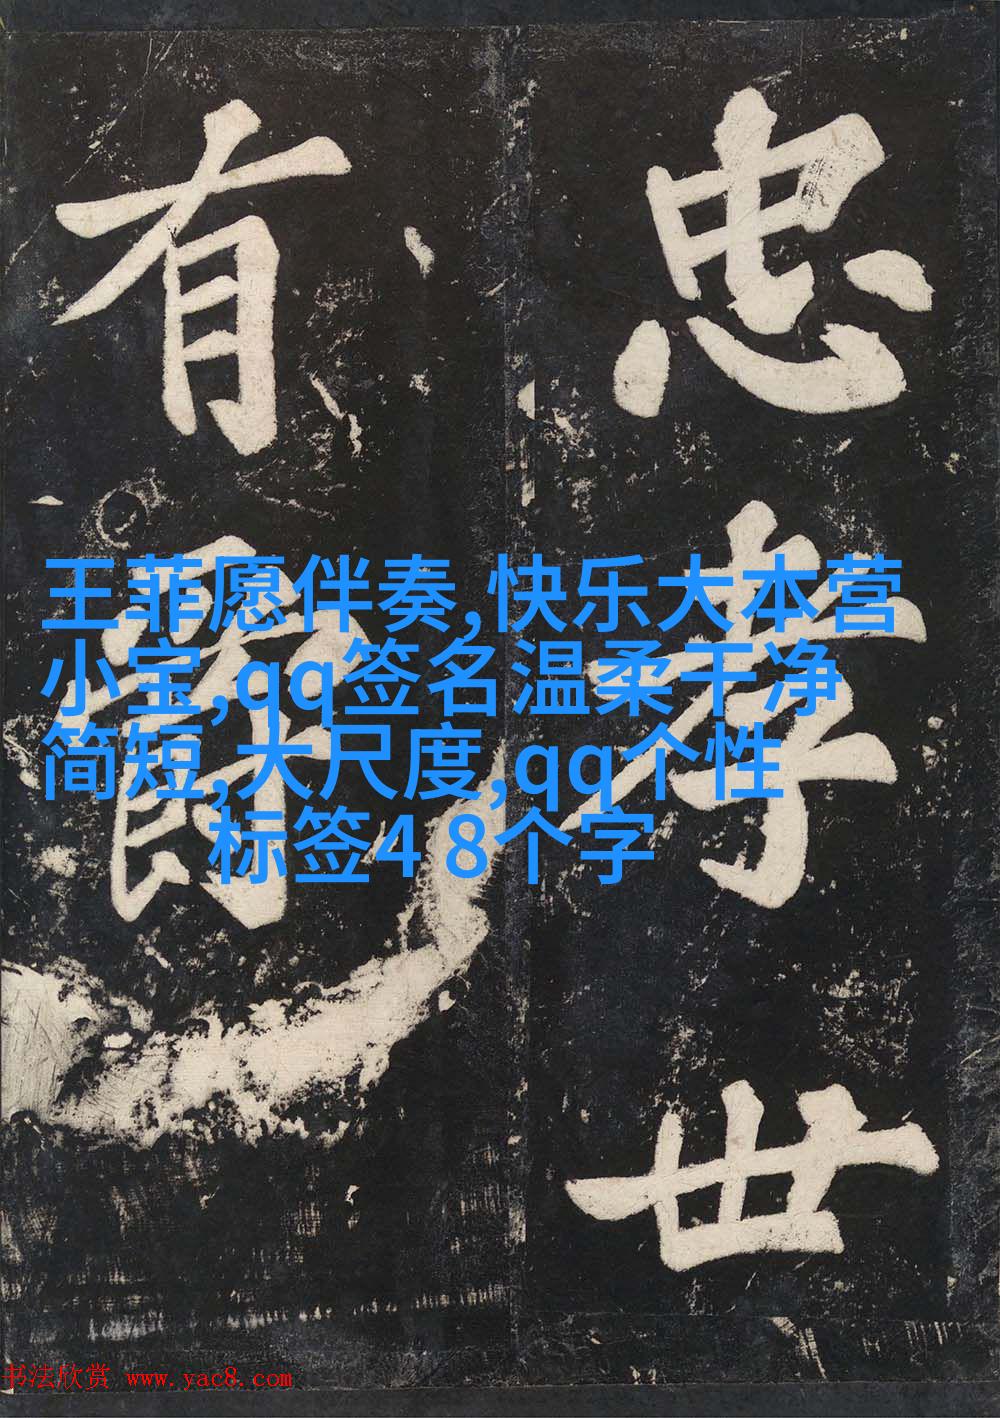 忠孝世
有
王菲愿伴奏,快乐大本营
小宝,qq签名温柔干净
简短,大尺度,qq个性
标签4 8个字
书法欣赏 www.yac8.com